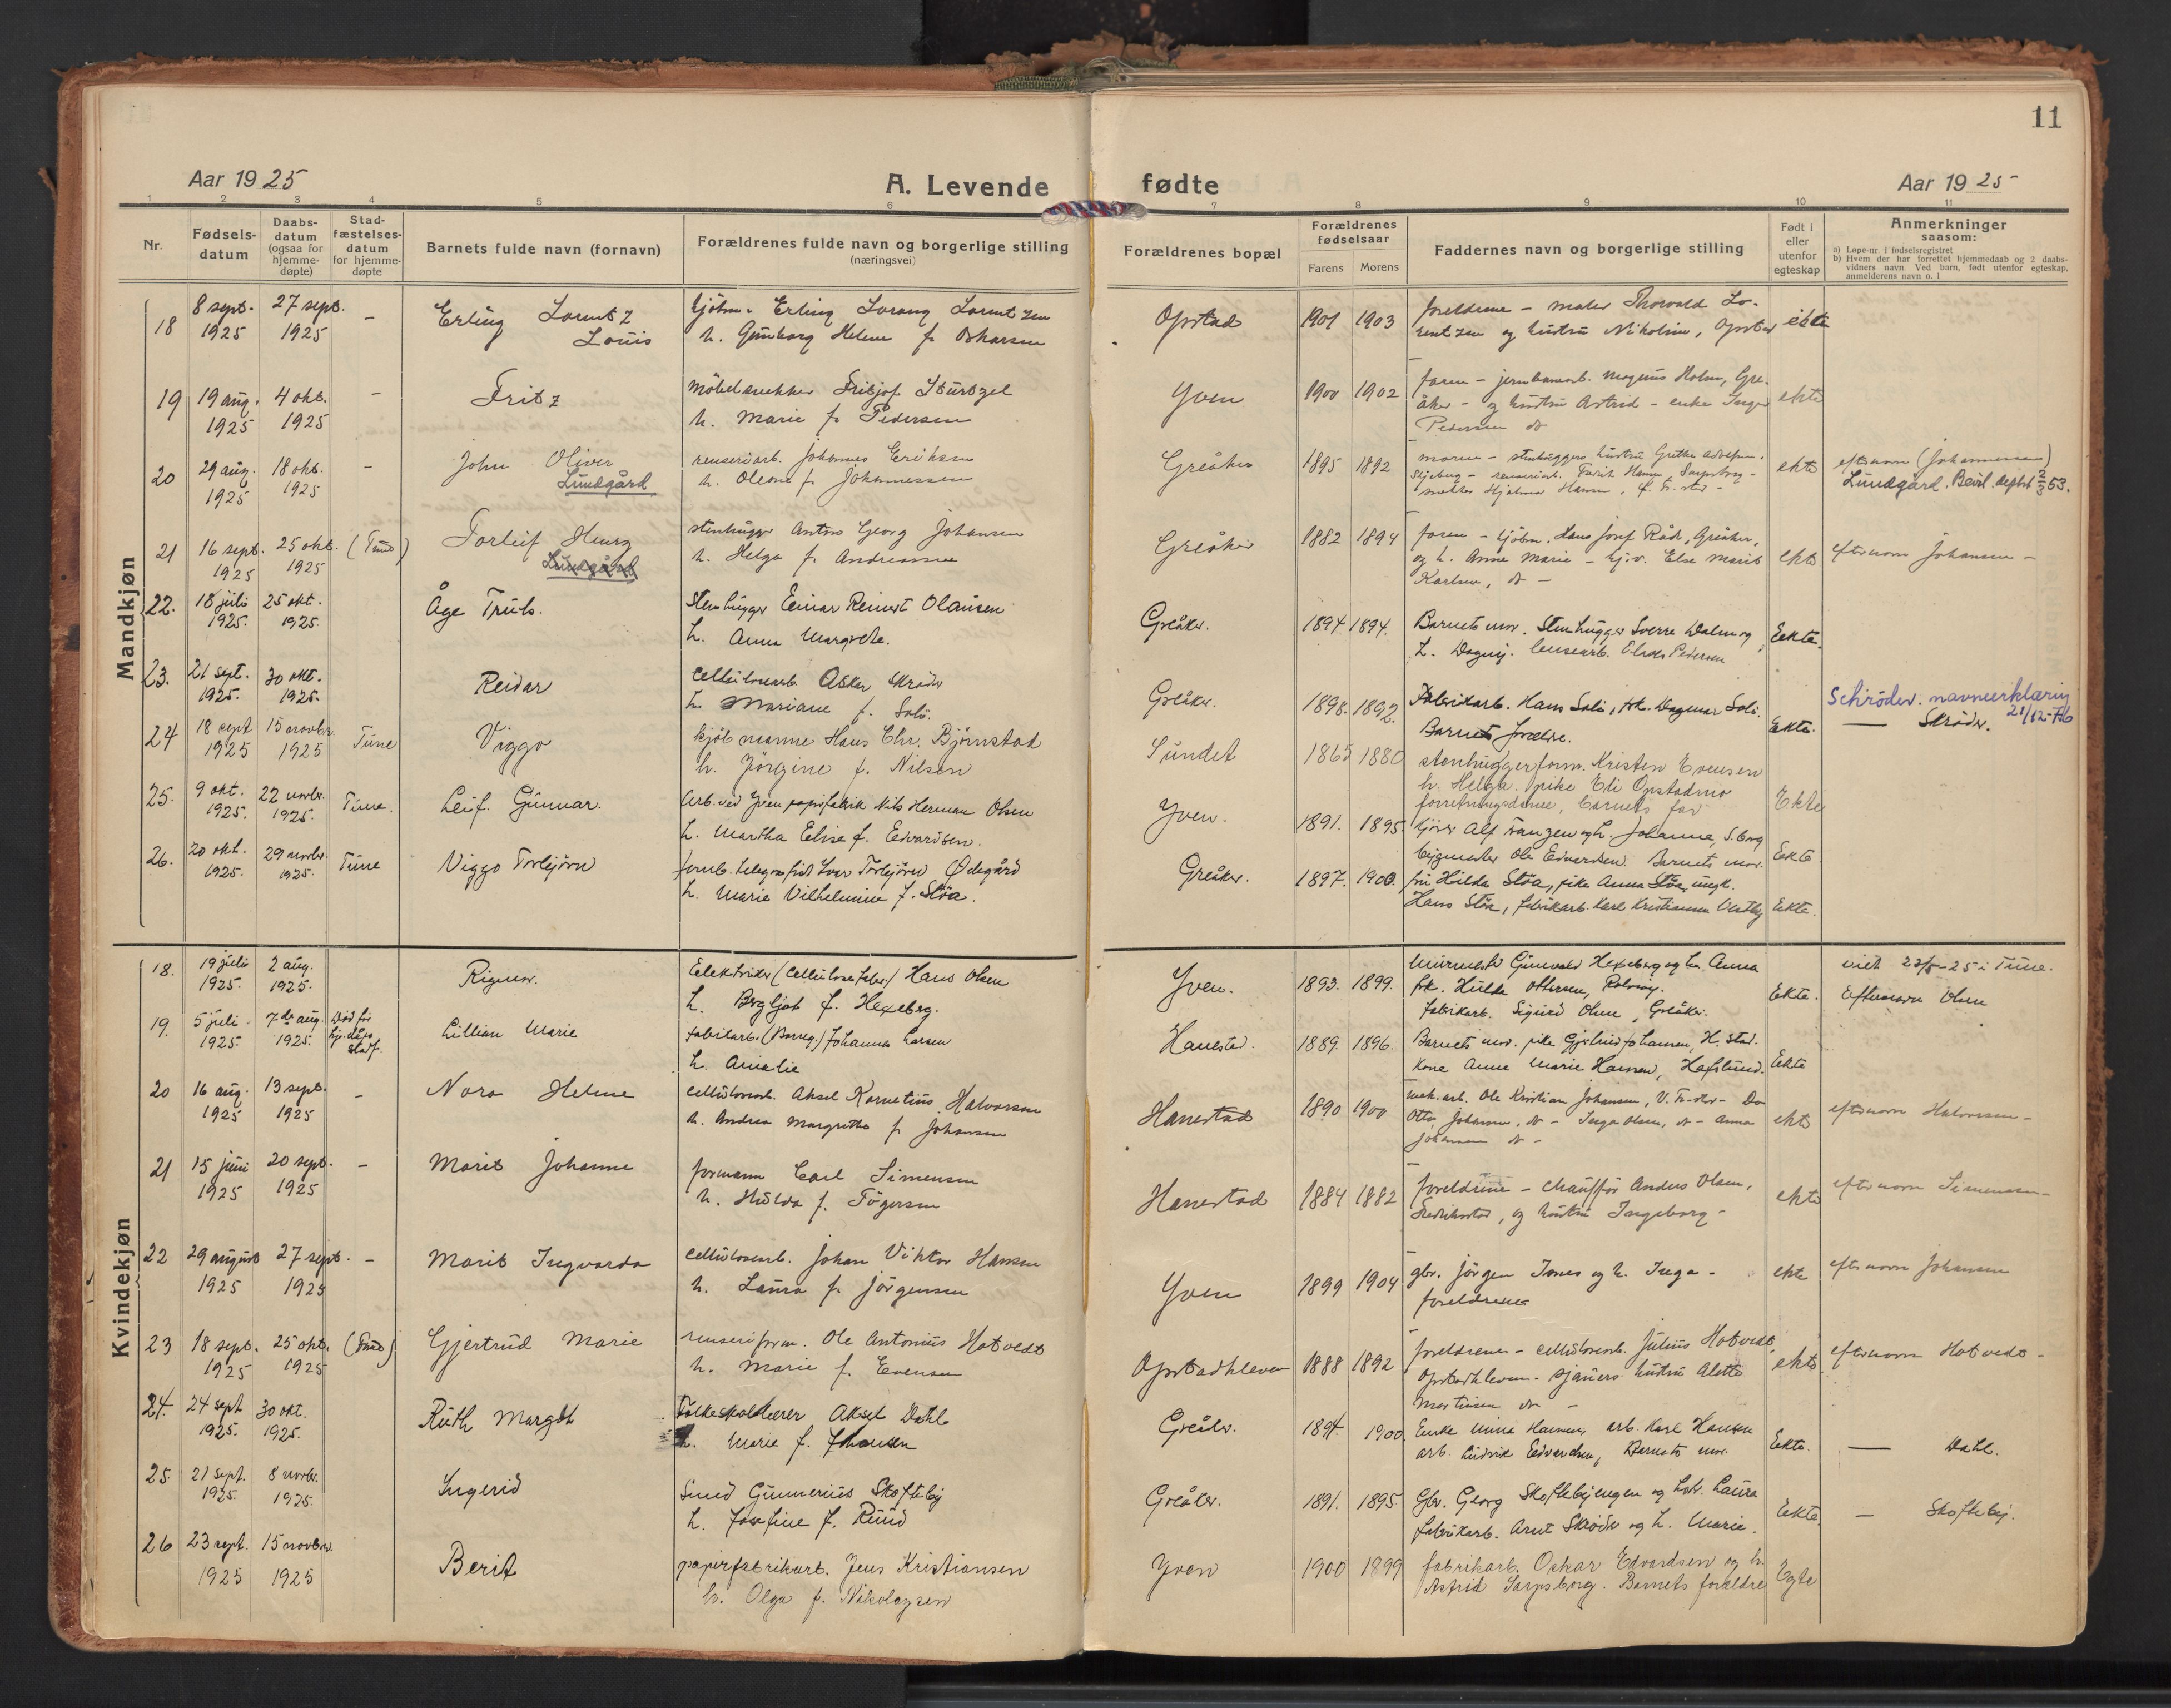 11
Aar 1925
A. Levende fødte
Aar 1925
1 2 3 4 5 6 7 8 9 10 11
Nr.
Fødsels-datum
Daabs-datum (ogsaa for hjemme-døpte)
Stad-fæstelses-datum for hjemme-døpte
Barnets fulde navn (fornavn)
Forældrenes fulde navn og borgerlige stilling (næringsvei)
Forældrenes bopæl
Forældrenes fødselsaar
Farens Morens
Faddernes navn og borgerlige stilling
Født i eller utenfor egteskap
Anmerkninger saasom:
a) Løpe-nr. i fødselsregistret
b) Hvem der har forrettet hjemmedaab og 2 daabs-vidners navn Ved barn, født utenfor egteskap, anmelderens navn o. l
Mandkjøn
18 8 sept. 1925 27 sept. 1925 – Erling Lorentz Louis
Erling Lorang Lorentzen
h. Gunborg Helene f. Oskarsen
Opstad 1901 1903
foreldrene – maler Thorvald Lo-
rentzen og hustru Nikoline, Opstad ekte
19 19 aug. 1925 4 okt. 1925 – Fritz
møbelsnekker Fritjof Sturtzel
h. Marie f. Pedersen
Yven 1900 1902
faren – jernbanearb. Magnus Holm, Gre-
åker – og hustru Astrid – enke Inger
Pedersen
ekte
20 29 aug. 1925 18 okt. 1925 – John Oliver Lundgård
renseriarb. Johannes Eriksen
h. Oleone f. Johannessen
Greåker 1895 1892
moren – stenhuggers hustru Grethe
ekte
efternavn (Johannessen)
Lundgård. Bevil. 2/3 53.
21 16 sept. 1925 25 okt. 1925 (Tune) Torleif Henry Lundgård
stenhugger Anton Georg Johansen
h. Helga f. Andreassen
Greåker 1882 1894
faren – kjøbm. Hans Josef Råde, Greåker,
og h. Anne Marie – Else Marie
Karlsen,
ekte
efternavn Johansen –
22. 18 juli 1925. 25 okt. 1925. Åge Truls.
Stenhugger Einar Reinert Olausen
h. Anna Margrete.
Greåker. 1894 1894.
Barnets mor. Stenhugger Sverre Dalen og
h. Dagny. Pedersen
Eekte.
23. 21 sept. 1925. 30 okt. 1925. Reidar
Cellulosearb. Asker Skrøder
h. Mariane f. Soli.
Greåker. 1898. 1892.
Fabrikarb. Hans Soli, frk. Dagmar Soli.
Barnets foreldre.
Eekte.
Schrøder. navneerklæring 21/12-76
— Skrøder.
24 18 sept 1925 15 novbr. 1925 Tune Viggo
kjøbmanne Hans Chr. Bjørnstad
h. Jørgine f. Nilsen
Sundet 1865 1880
stenhuggerform. Kristen Evensen
h. Helga. pike Eli Opstadmo
forretningsdame, barnets far
Ekte
25. 9 okt. 1925. 22 novbr. 1925. Tune. Leif. Gunnar.
Arb. ved Yven papirfabrik Nils Herman Olsen
h. Martha Elise f. Edvardsen.
Yven. 1891. 1895.
Alf Franzen og h. Johanne, S.borg
bygmester Ole Edvardsen. Barnets mor.
Eekte
26. 20 okt. 1925. 29 novbr. 1925. Tune Viggo Torbjørn
Jernb. telegrafist Ivar Torbjørn Ødegård
h. Marie Vilhelmine f. Støa.
Greåker. 1897. 1900.
fru Hilda Støa, pike Anna Støa, ungk.
Hans Støa, fabrikarb. Karl Kristiansen Vestby
Eekte.
Kvindekjøn
18. 19 juli 1925. 2 aug. 1925. Rigmor.
Eelektriker (Cellulosefabr.) Hans Olsen
h. Bergljot f. Hexeberg.
Yven. 1893. 1899.
Murmester Gunvald Hexeberg og h. Anna
frk. Hulda Ottersen, Rolvsøy.
fabrikarb. Sigurd Olsen, Greåker.
Eekte.
viet 23/5-25 i Tune.
Efternavn Olsen
19. 5 juli 1925. 7de aug. 1925. Død før hj.dåps stadf. Lillian Marie
fabrikarb. (Borreg.) Johannes Larsen
h. Amalie
Hanestad. 1889. 1896.
Barnets mor. pike Johansen, H.stad.
Kone Anne Marie Hansen, Hafslund.
Eekte
20 16 aug. 1925 13 sept. 1925 – Nora Helene
cellulosearb. Aksel Kornelius Halvorsen
h. Andrea Margrethe f. Johansen
Hanestad 1890 1900
mek. arb. Ole Kristian Johansen,
Otto Johansen, – Inga Olsen, – Anna
Johansen –
ekte
efternavn Halvorsen –
21 15 juni 1925 20 sept. 1925 – Marit Johanne
formann Carl Simensen
h. Hulda f. Tøgersen
Hanestad 1884 1882
foreldrene – chauffør Anders Olsen,
Fredrikstad, og hustru Ingeborg –
ekte
efternavn Simensen –
22 29 august 1925 27 sept. 1925 – Marit Ingvarda
cellulosearb. Johan Viktor Hansen
h. Laura f. Jørgensen
Yven 1899 1904
gbr. Jørgen Tones og h. Inga –
foreldrene
ekte
efternavn Johansen
23 18 sept. 1925 25 okt. 1925 (Tune) Gjertrud Marie
renseriform. Ole Antonius Hotvedt
h. Marie f. Evensen
Opstadkleven 1888 1892
foreldrene – cellulosearb. Julius Hotvedt,
Opstadkleven – sjauers hustru Alette
Martinsen
ekte
efternavn Hotvedt –
24. 24 sept 1925. 30 okt. 1925. Ruth Margot
Folkeskolelærer Aksel Dahl
h. Marie f. Johansen
Greåker. 1894. 1900.
Enke Mina Hansen, arb. Karl Hansen
arb. Ludvik Edvardsen, Barnets mor.
Eekte.
— Dahl.
25. 21 sept. 1925. 8 novbr. 1925. Ingerid
Smed Gunnerius Skofteby
h. Josefine f. Ruud
Greåker. 1891. 1895.
Gbr. Georg Skoftebyengen og Laura
fabrikarb. Arnt Skrøder og h. Marie.
Eekte.
— Skofteby.
26 23 sept. 1925 15 novbr. 1925 Berit
papirfabrikarb. Jens Kristiansen
h. Olga f. Nikolaysen
Yven 1900 1899
fabrikarb. Oskar Edvardsen og h.
Astrid Sarpsborg. Barnets forældre
Egte